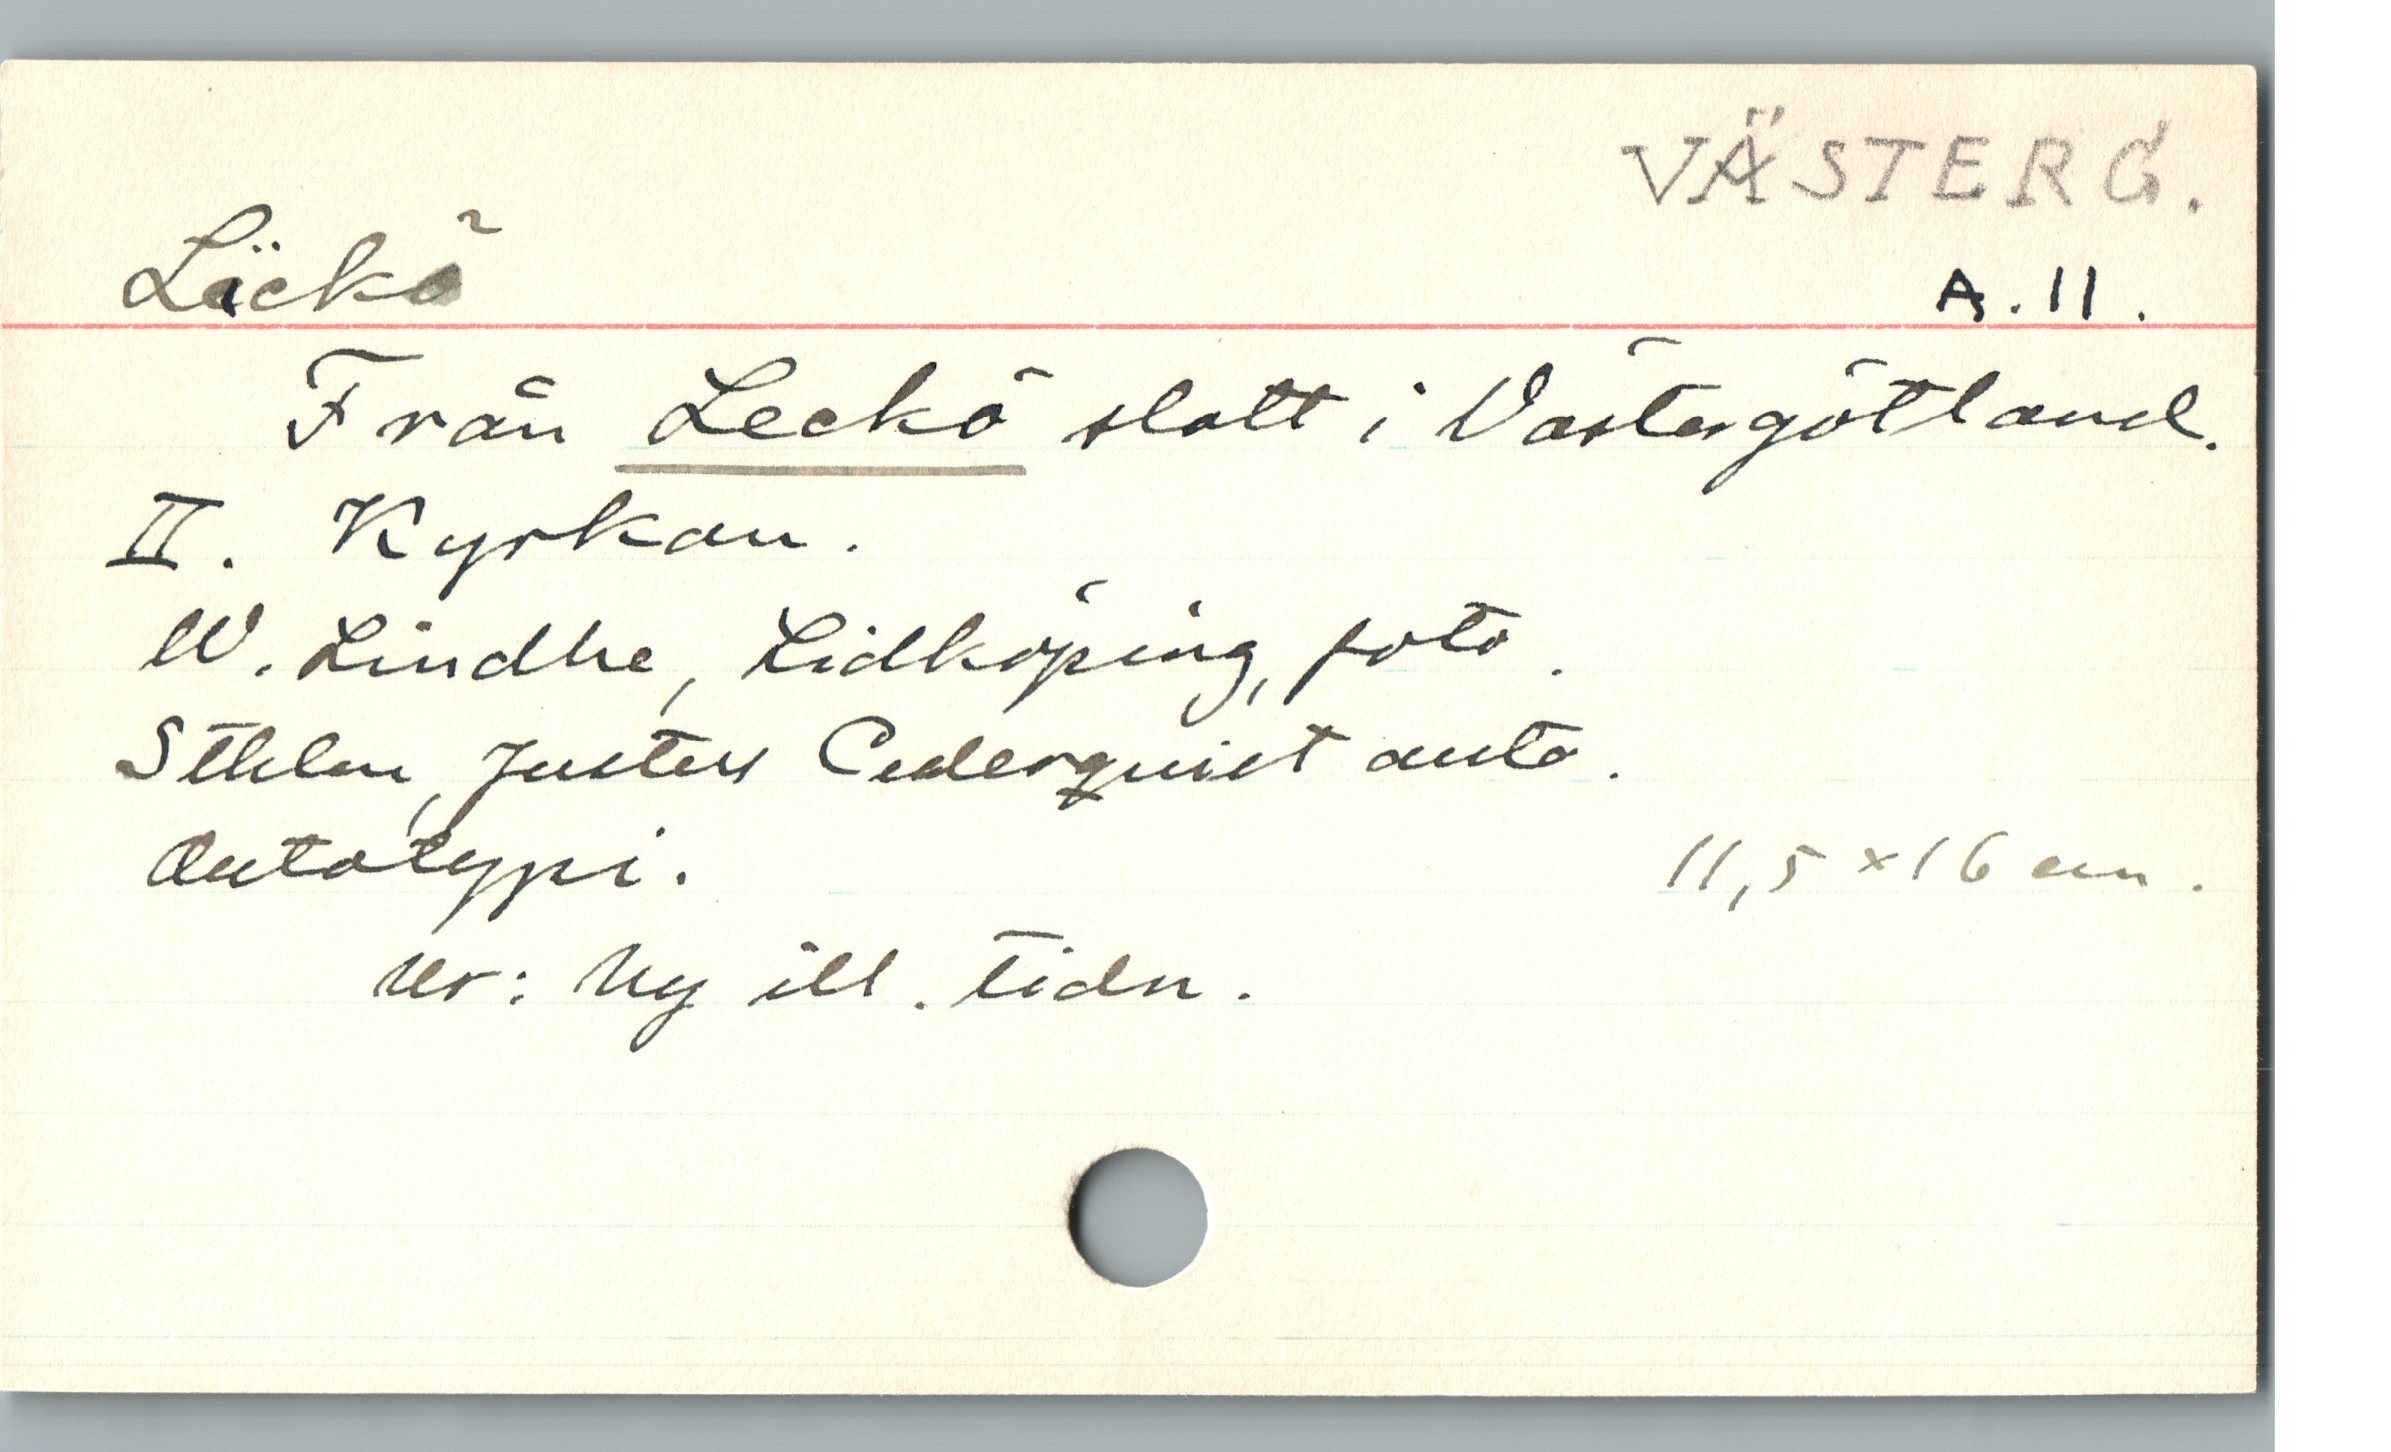 VÄSTERG.
Läckö
A.11.
Från Leckö slott i Västergötland.
II. Kyrkan.
W. Lindhe, Lidköping, foto.
Sthlm, Justus Cederquist auto.
Autotypi.
11,5 × 16 cm.
Ur: Ny ill. tidn.